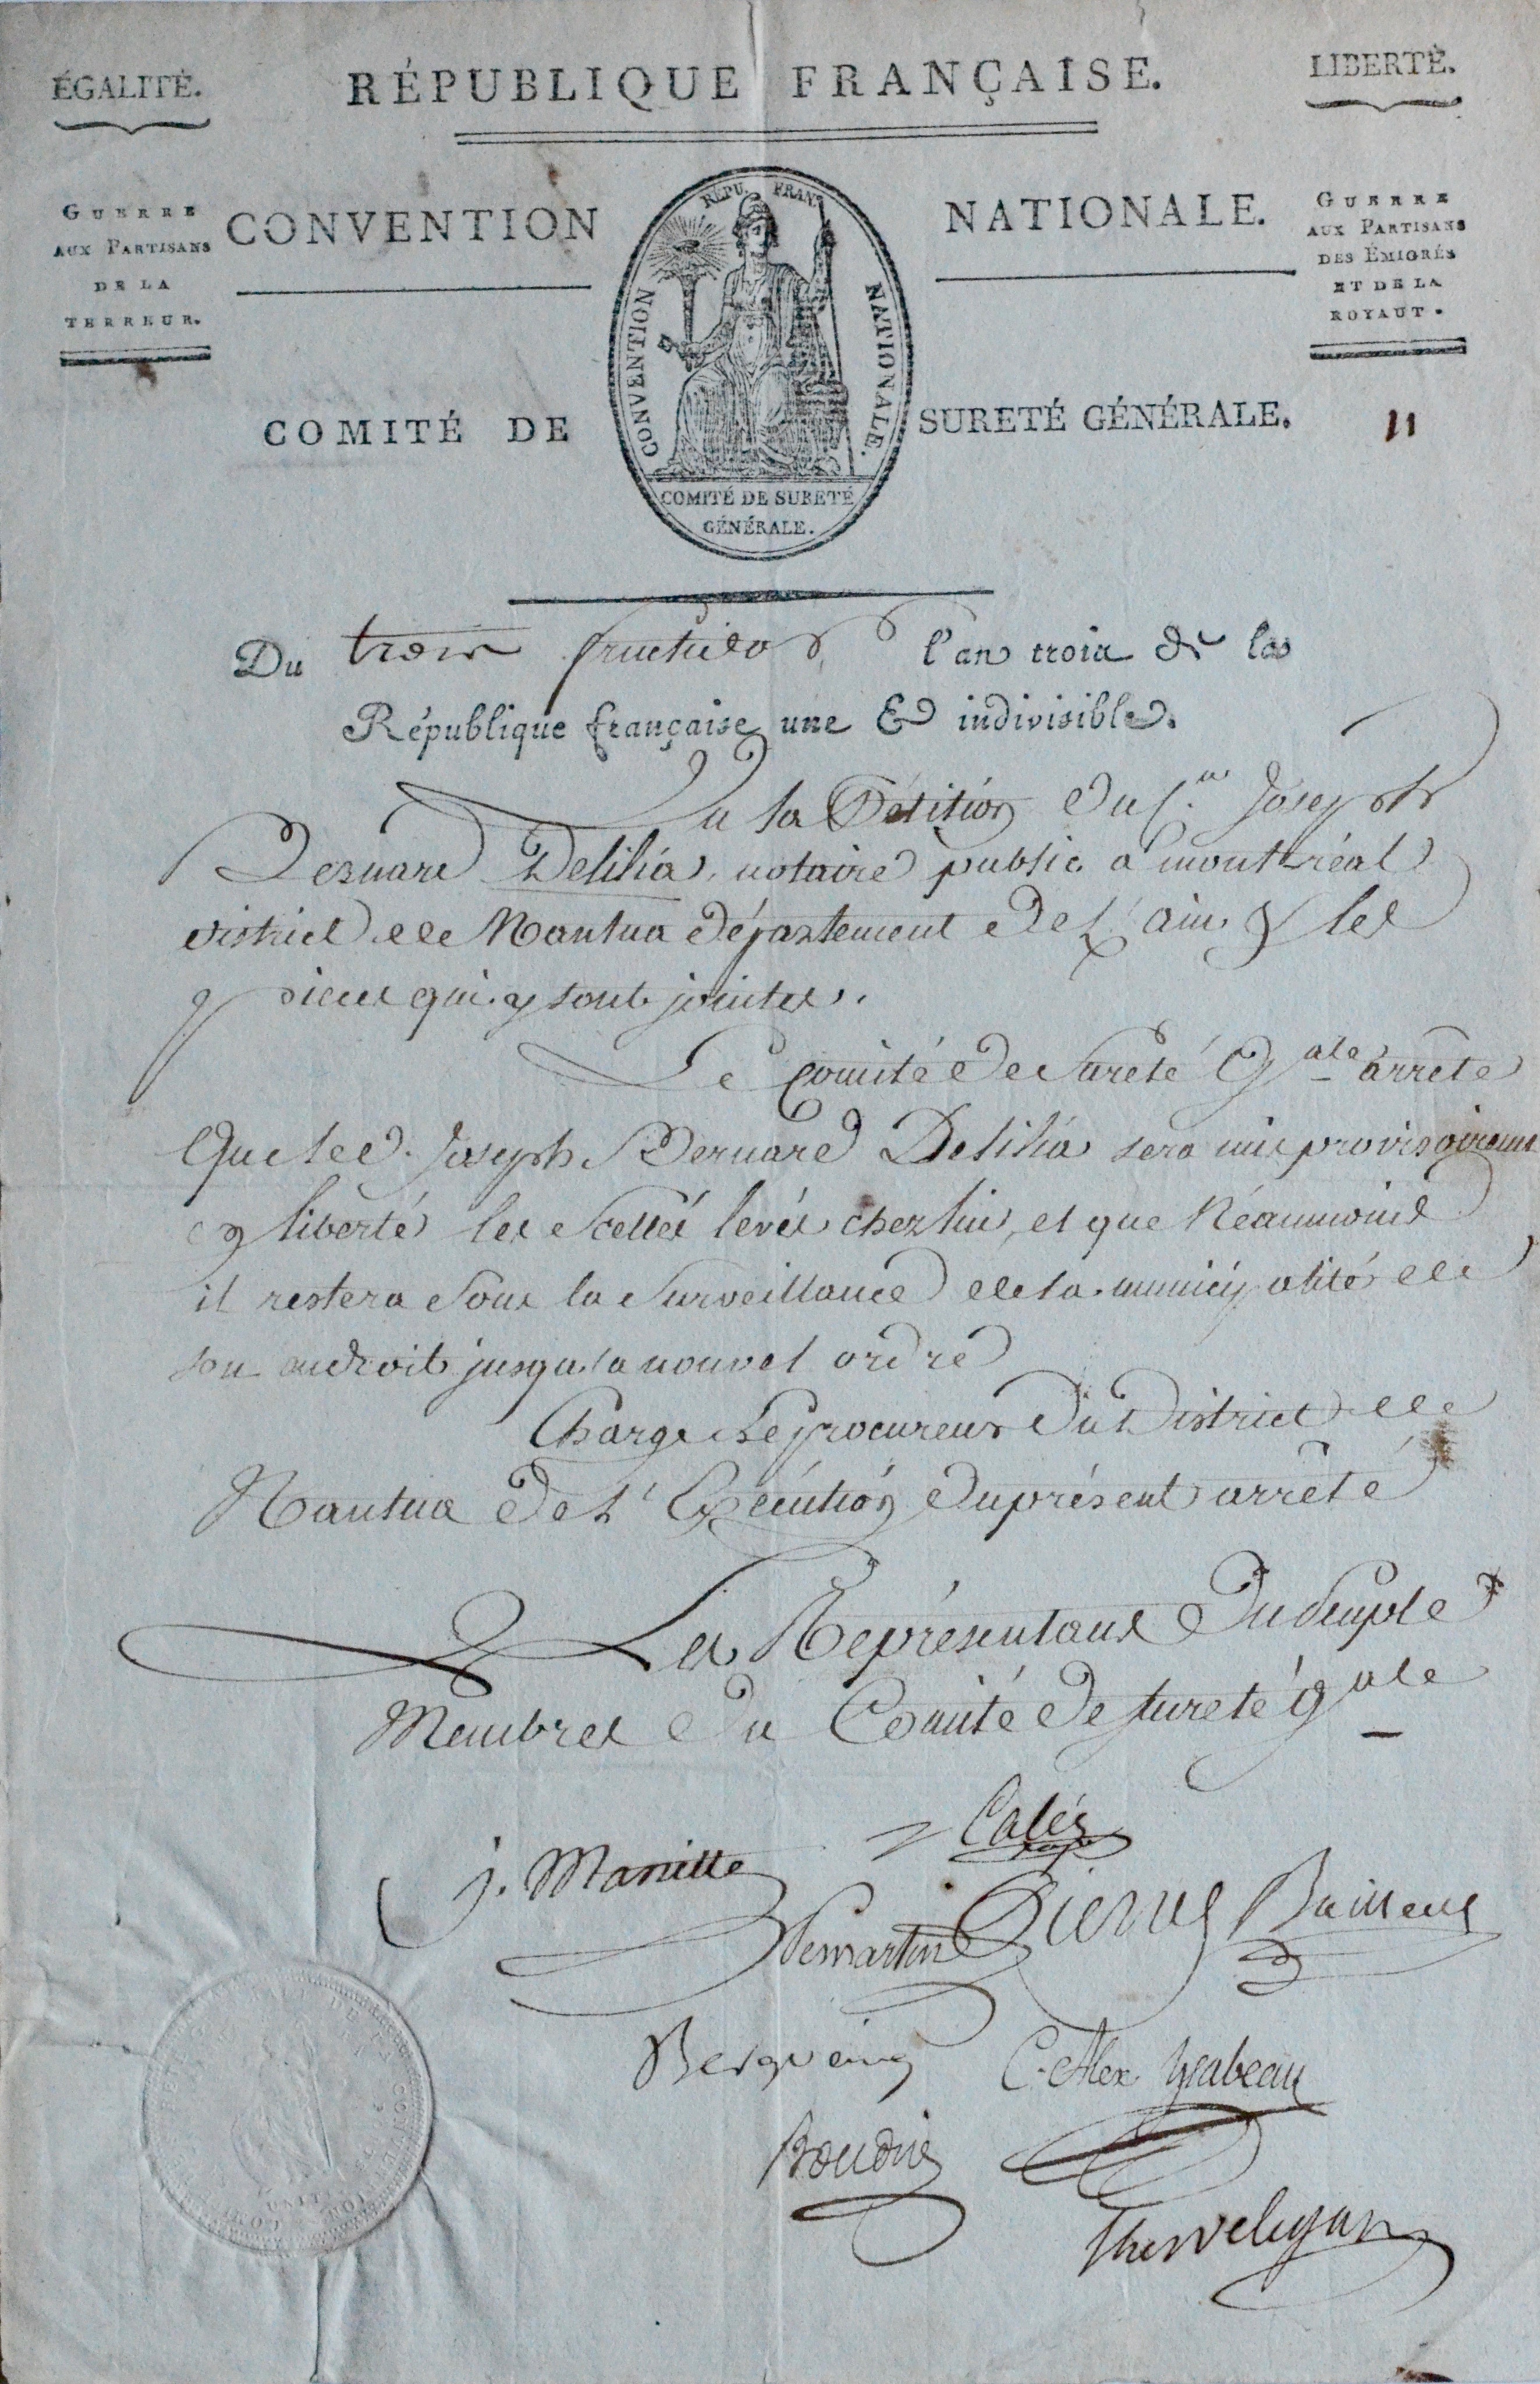 ÉGALITÉ. RÉPUBLIQUE FRANÇAISE. LIBERTÉ.
GUERRE
AUX PARTISANS
DE LA
TERREUR.
CONVENTION NATIONALE.
GUERRE
AUX PARTISANS
DES ÉMIGRÉS
ET DE LA
ROYAUT.
RÉPU. FRAN.
CONVENTION NATIONALE.
COMITÉ DE SURETÉ
GÉNÉRALE.
COMITÉ DE SURETÉ GÉNÉRALE. 11
Du trois fructidor l'an trois de la
République française une & indivisible.
Vu la Pétition du C.en Joseph
Bernard Delilia, notaire public a montréal
district de Nantua département de l'ain, & les
pieces qui y sont jointes.
Le Comité de Sureté Gale arrête
Que le C. Joseph Bernard Delilia sera mis provisoirement
en liberté les Scellés levés chez lui, et que Néanmoins
il restera Sous la Surveillance de la municipalité de
son endroit jusqu'a nouvel ordre
Charge Le procureur du District de
Nantua de L'Exécution du présent arrêté
Les Représentans du Peuple
Membres du Comité de Sureté gale
Calès
J. Mariette
Pemartin Pierret Bailleul
Bergoeing C. Alex. Ysabeau
Boudin
Kervelegan